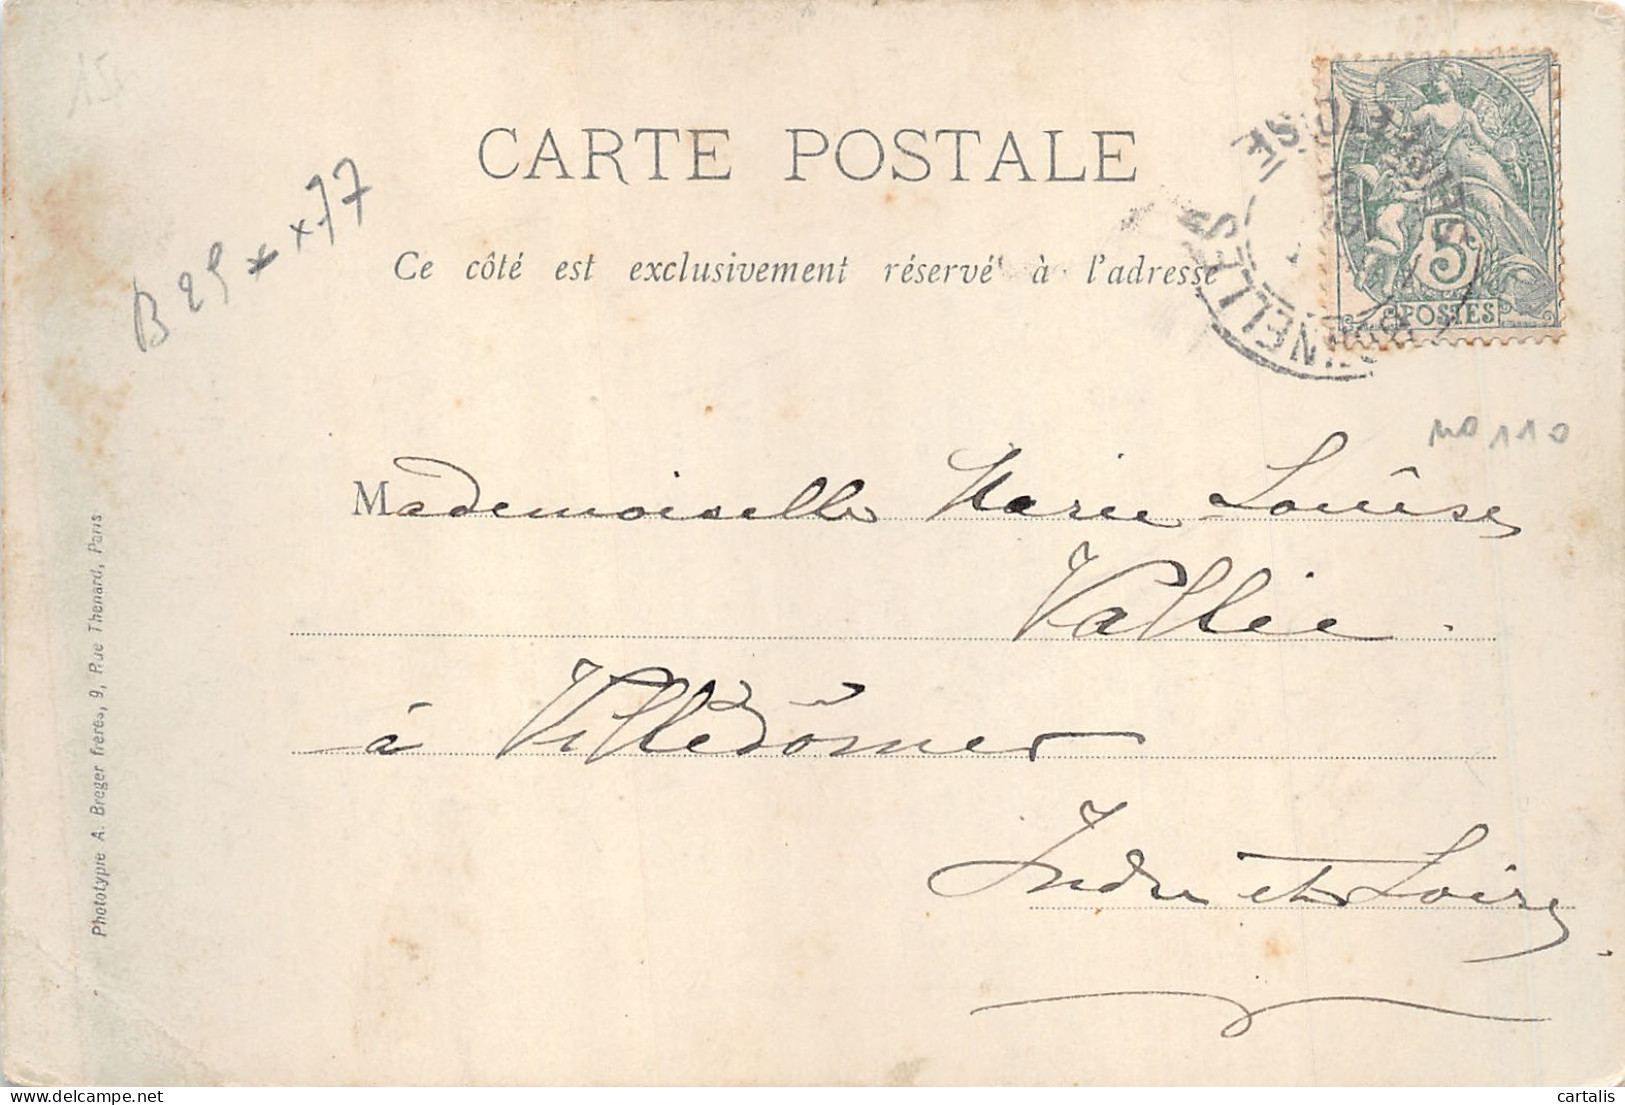 15
CARTE POSTALE
B 25 * x 77
Ce côté est exclusivement réservé à l'adresse
5
POSTES
NELLES
110
Mademoiselle Marie Louise
Vallée.
à Villedômer
Indre et Loire.
Phototypie A. Breger frères, 9, Rue Thenard, Paris
cartalis